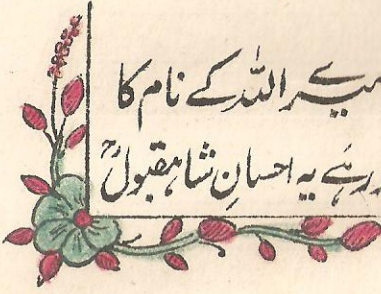 میرے اللہ کے نام کا
رہے یہ احسانِ شاہ مقبولؒ